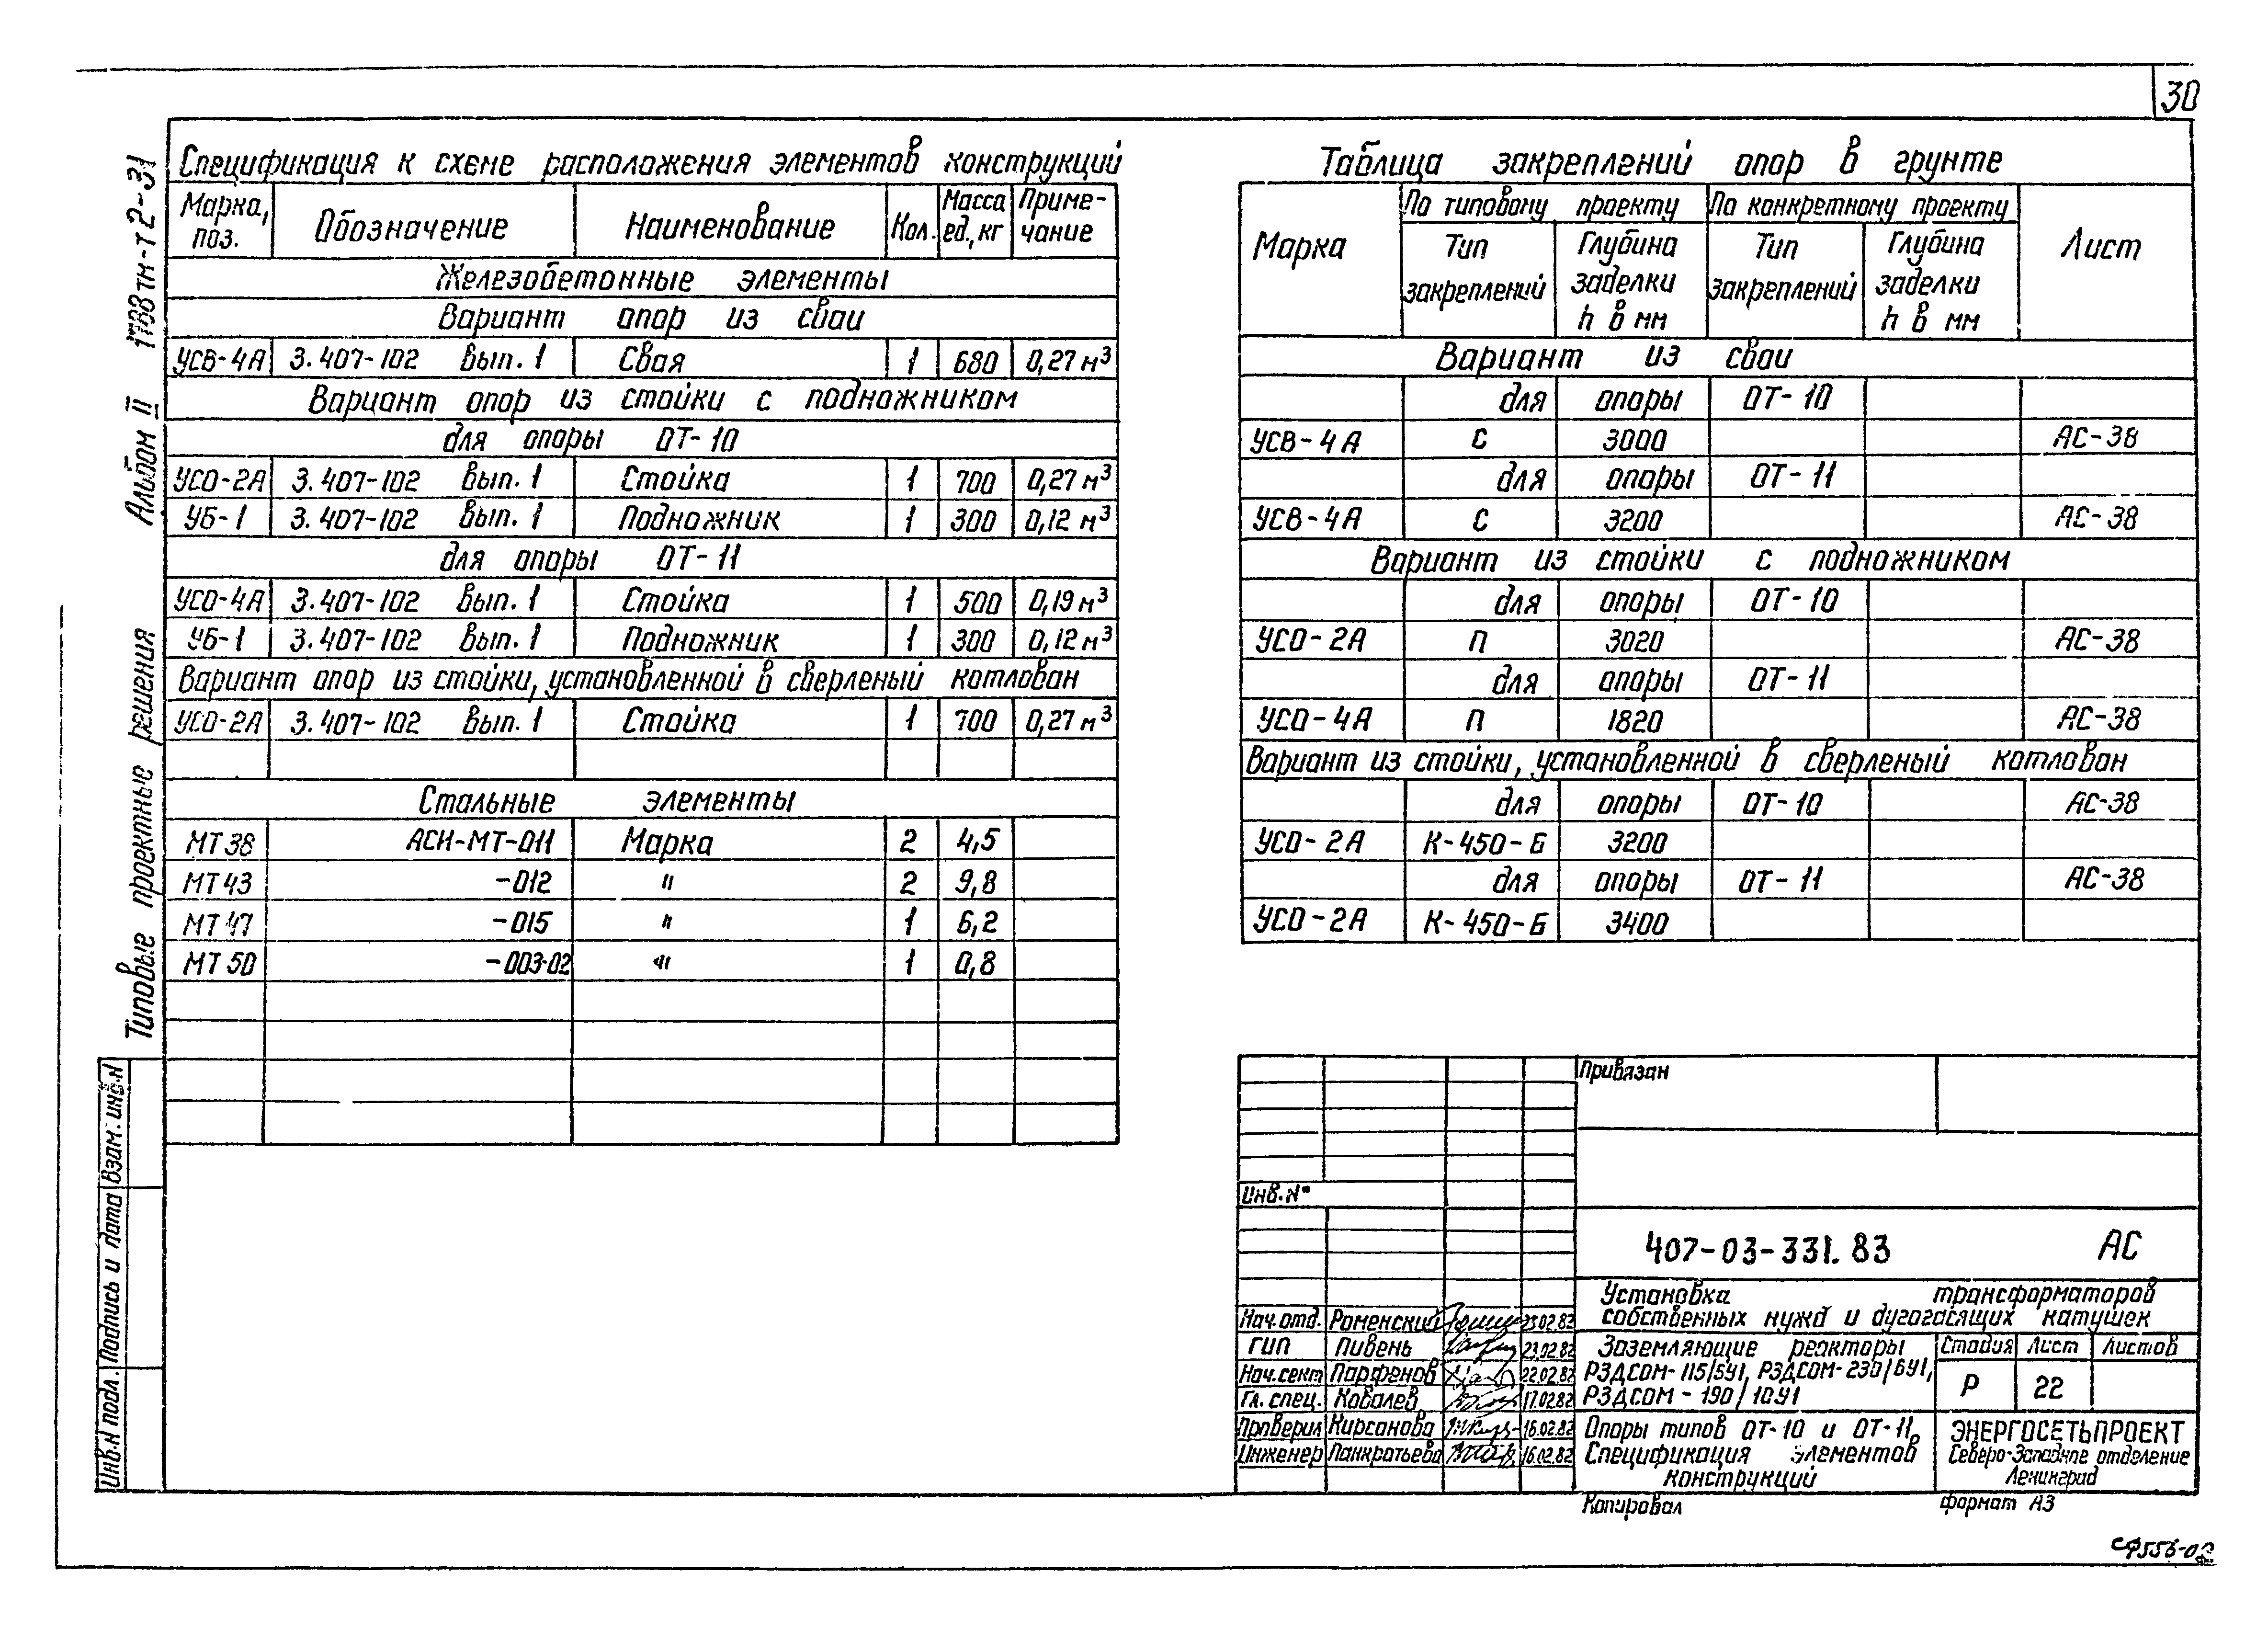 30
Спецификация к схеме расположения элементов конструкций
Марка, поз. | Обозначение | Наименование | Кол. | Масса ед., кг | Приме-чание
Железобетонные элементы
Вариант опор из сваи
УСВ-4А | 3.407-102 Вып. 1 | Свая | 1 | 680 | 0,27 м³
Вариант опор из стойки с подножником
для опоры ОТ-10
УСО-2А | 3.407-102 Вып. 1 | Стойка | 1 | 700 | 0,27 м³
УБ-1 | 3.407-102 Вып. 1 | Подножник | 1 | 300 | 0,12 м³
для опоры ОТ-11
УСО-4А | 3.407-102 Вып. 1 | Стойка | 1 | 500 | 0,19 м³
УБ-1 | 3.407-102 Вып. 1 | Подножник | 1 | 300 | 0,12 м³
Вариант опор из стойки, установленной в сверленый котлован
УСО-2А | 3.407-102 Вып. 1 | Стойка | 1 | 700 | 0,27 м³
Стальные элементы
МТ 38 | АСИ-МТ-011 | Марка | 2 | 4,5
МТ 43 | -012 | " | 2 | 9,8
МТ 47 | -015 | " | 1 | 6,2
МТ 50 | -003-02 | " | 1 | 0,8
Таблица закреплений опор в грунте
Марка | По типовому проекту | По конкретному проекту | Лист
Тип закреплений | Глубина заделки h в мм | Тип закреплений | Глубина заделки h в мм
Вариант из сваи
для опоры ОТ-10
УСВ-4А | С | 3000 | АС-38
для опоры ОТ-11
УСВ-4А | С | 3200 | АС-38
Вариант из стойки с подножником
для опоры ОТ-10
УСО-2А | П | 3020 | АС-38
для опоры ОТ-11
УСО-4А | П | 1820 | АС-38
Вариант из стойки, установленной в сверленый котлован
для опоры ОТ-10 | АС-38
УСО-2А | К-450-Б | 3200
для опоры ОТ-11 | АС-38
УСО-2А | К-450-Б | 3400
Типовые проектные решения Альбом II 1788тм-т2-31
Инв.N подл. | Подпись и дата | Взам. инв.N
Привязан
Инв.N°
407-03-331.83 АС
Установка трансформаторов
собственных нужд и дугогасящих катушек
Нач.отд. | Роменский | 23.02.82
ГИП | Пивень | 23.02.82
Нач.сект | Парфенов | 22.02.82
Гл. спец. | Ковалев | 17.02.82
Проверил | Кирсанова | 16.02.82
Инженер | Панкратьева | 16.02.82
Заземляющие реакторы
РЗДСОМ-115/6У1, РЗДСОМ-230/6У1,
РЗДСОМ-190/10У1
Стадия | Лист | Листов
Р | 22
Опоры типов ОТ-10 и ОТ-11.
Спецификация элементов
конструкций
ЭНЕРГОСЕТЬПРОЕКТ
Северо-Западное отделение
Ленинград
Копировал
формат А3
СФ556-02